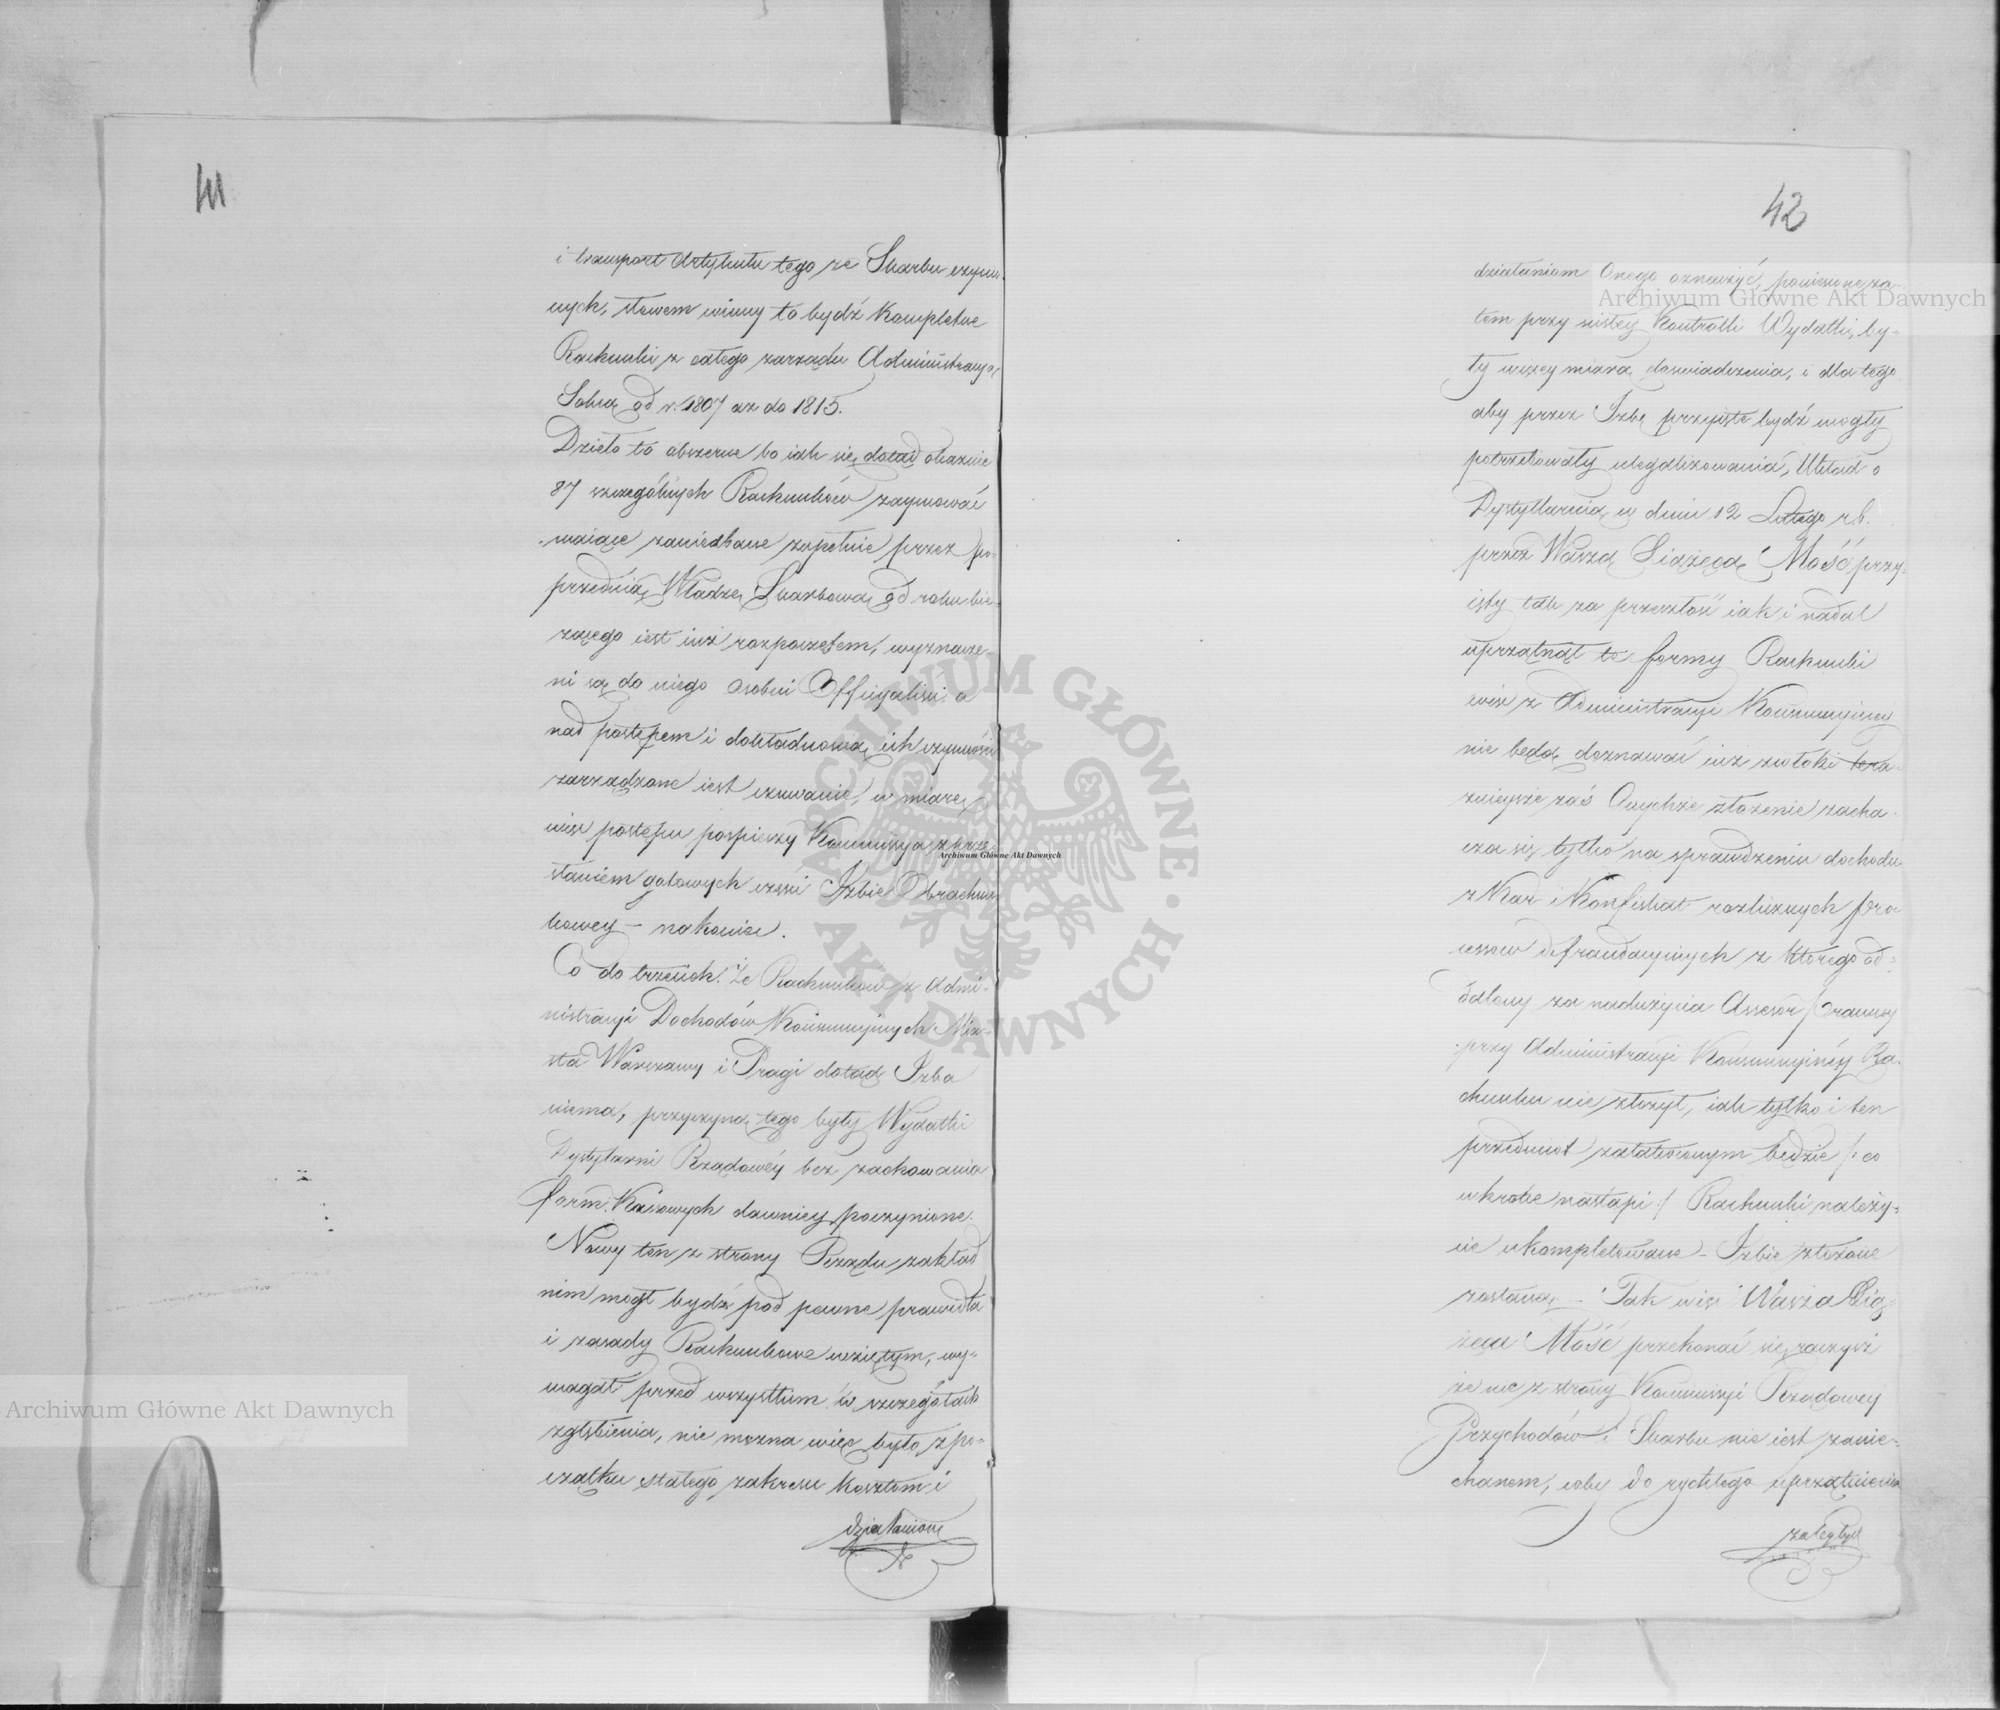 41
i transport Artykułu tego ze Skarbu czynio-
nych, słowem winny to bydź Kompletne
Rachunki z całego zarządu Administracyi
Solną od r. 1807 aż do 1815.
Dzieło to obszerne bo iak się dotąd okazuie
87 szczególnych Rachunków zaymować
maiące zaniedbane zupełnie przez po-
przednią Władzę Skarbową od roku bie-
żącego iest iuż rozpoczętem, wyznacze-
ni są do niego osobni Officyaliści a
nad postępem i dokładnością ich czynności
zarządzone iest czuwanie, w miarę
więc postępu pospieszy Kommissya z prze-
słaniem gotowych części Izbie Obrachun-
kowey – nakoniec.
Co do trzecich: Że Rachunków z Admi-
nistracyi Dochodów Konsumcyinych Mia-
sta Warszawy i Pragi dotąd Izba
niema, przyczyną tego były Wydatki
Dystylarni Rządowéy bez zachowania
form Kassowych dawniey poczynione.
Nowy ten z strony Rządu zakład
nim mógł bydź pod pewne prawidła
i zasady Rachunkowe wziętym, wy-
magał przed wszystkim w szczegółach
zgłębienia, nie można więc było z po-
czątku stałego zakresu kosztom i
działaniom
42
działaniom Onego oznaczyć, poniesione za-
tem przy ścisłey Kontrolli Wydatki, by-
ły więcey miarą doświadczenia, i dla tego
aby przez Izbę przyięte bydź mogły
potrzebowały ulegalizowania, Układ o
Dystyllarnią w dniu 12 Lutego r.b.
przez Waszą Xiążęcą Mość przy-
ięty tak za przeszłość iak i nadal
uprzątnął te formy Rachunki
więc z Administracyi Konsumcyiney
nie będą doznawać iuż zwłoki tera-
znieysze zaś Onychże złożenie zacha-
cza się tylko na sprawdzeniu dochodu
z Kar i Konfiskat rozlicznych pro-
cessów defraudacyinych z którego od-
dalony za nadużycia Assesor Prawny
przy Administracyi Konsumcyinéy Ra-
chunku nie złożył, iak tylko i ten
przedmiot załatwionym będzie /: co
wkrótce nastąpi :/ Rachunki należy-
cie ukompletowane – Izbie złożone
zostaną – Tak więc Wasza Xią-
żęca Mość przekonać się raczysz
że nic z strony Kommissyi Rządowey
Przychodów i Skarbu nie iest zanie-
chanem, coby do rychłego uprzątnienia
zaległych
Archiwum Główne Akt Dawnych
Archiwum Główne Akt Dawnych
Archiwum Główne Akt Dawnych
ARCHIWUM GŁÓWNE AKT DAWNYCH